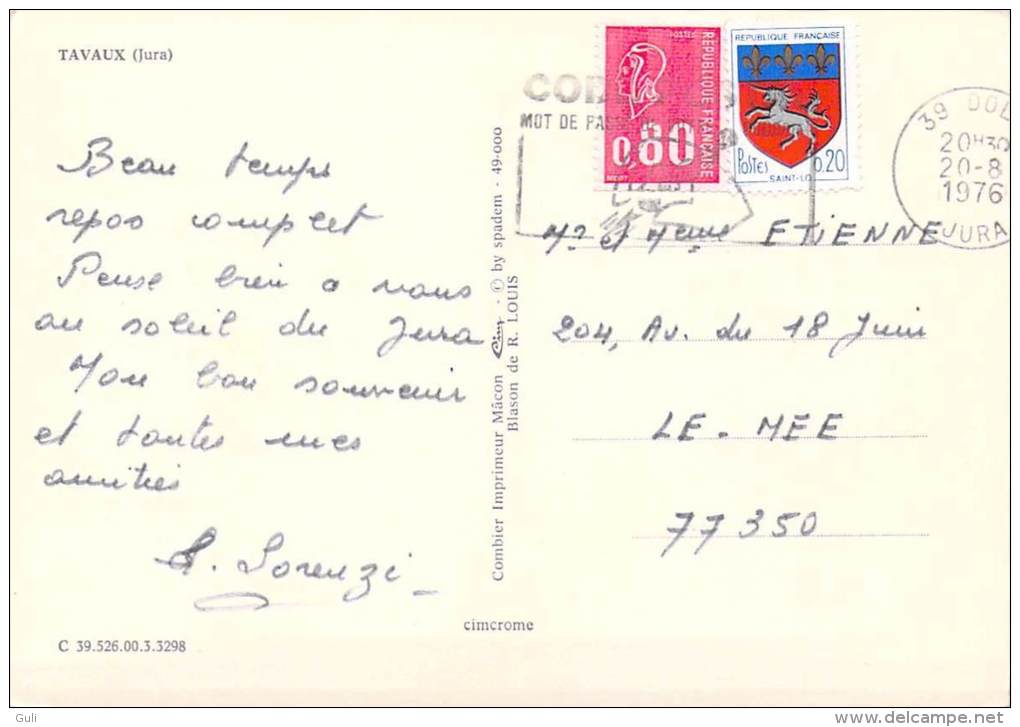 TAVAUX (Jura)
Beau temps
repos complet
Pense bien a vous
au soleil du Jura
Mon bon souvenir
et toutes mes
amitiés
A. Lorenzi
C 39.526.00.3.3298
Combier Imprimeur Mâcon Cim - © by spadem - 49-000
Blason de R. LOUIS
cimcrome
MOT DE
POSTES
REPUBLIQUE FRANÇAISE
0,80
REPUBLIQUE FRANÇAISE
Postes 0,20
SAINT-LO
39 DOL
20H30
20-8
1976
JURA
Mr et Meme ETIENNE
204, Av. du 18 Juin
LE-MEE
77350
Guli
delcampe.net